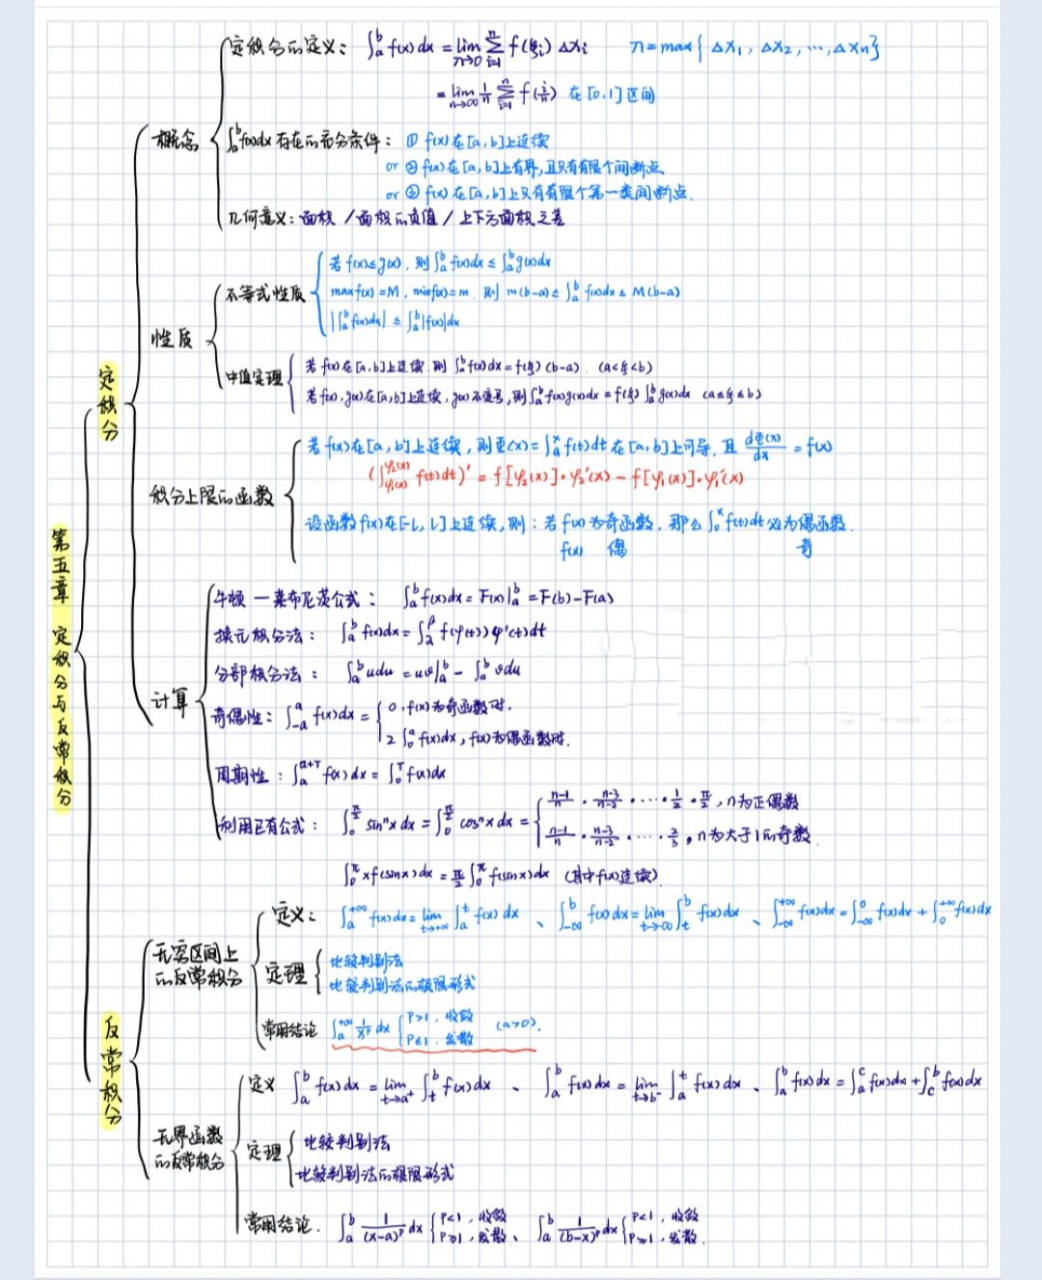 第五章 定积分与反常积分
定积分
概念
定积分的定义： ∫ₐᵇ f(x)dx = lim_{λ→0} Σ_{i=1}^{n} f(ξᵢ) Δxᵢ    λ=max{ Δx₁, Δx₂, …, Δxₙ}
= lim_{n→∞} 1/n Σ_{i=1}^{n} f(i/n) 在[0,1]区间
∫ₐᵇ f(x)dx 存在的充分条件： ① f(x)在[a,b]上连续
or ② f(x)在[a,b]上有界,且只有有限个间断点
or ③ f(x)在[a,b]上只有有限个第一类间断点.
几何意义：面积 / 面积的负值 / 上下方面积之差
性质
不等式性质
若 f(x)≤g(x), 则 ∫ₐᵇ f(x)dx ≤ ∫ₐᵇ g(x)dx
maxf(x)=M, minf(x)=m. 则 m(b-a) ≤ ∫ₐᵇ f(x)dx ≤ M(b-a)
|∫ₐᵇ f(x)dx| ≤ ∫ₐᵇ |f(x)|dx
中值定理
若 f(x)在[a,b]上连续,则 ∫ₐᵇ f(x)dx = f(ξ)(b-a). (a<ξ<b)
若f(x),g(x)在[a,b]上连续,g(x)不变号,则∫ₐᵇ f(x)g(x)dx = f(ξ)∫ₐᵇ g(x)dx (a≤ξ≤b)
积分上限的函数
若 f(x)在[a,b]上连续, 则 Φ(x)=∫ₐˣ f(t)dt 在[a,b]上可导, 且 dΦ(x)/dx = f(x)
(∫_{φ₁(x)}^{φ₂(x)} f(t)dt)' = f[φ₂(x)]·φ₂'(x) - f[φ₁(x)]·φ₁'(x)
设函数f(x)在[-L, L]上连续,则：若 f(x)为奇函数, 那么∫₀ˣ f(t)dt 必为偶函数.
f(x) 偶 奇
计算
牛顿—莱布尼茨公式： ∫ₐᵇ f(x)dx = F(x)|ₐᵇ = F(b)-F(a)
换元积分法： ∫ₐᵇ f(x)dx = ∫_α^β f(φ(t))φ'(t)dt
分部积分法： ∫ₐᵇ udu = uv|ₐᵇ - ∫ₐᵇ vdu
奇偶性： ∫₋ₐᵃ f(x)dx = { 0, f(x)为奇函数时.
2∫₀ᵃ f(x)dx, f(x)为偶函数时.
周期性： ∫ₐ^{a+T} f(x)dx = ∫₀ᵀ f(x)dx
利用已有公式： ∫₀^{π/2} sinⁿx dx = ∫₀^{π/2} cosⁿx dx = { (n-1)/n · (n-3)/(n-2) · … · 1/2 · π/2, n为正偶数
(n-1)/n · (n-3)/(n-2) · … · 2/3, n为大于1的奇数.
∫₀^π xf(sinx)dx = π/2 ∫₀^π f(sinx)dx (其中f(x)连续)
反常积分
无穷区间上的反常积分
定义： ∫ₐ^{+∞} f(x)dx = lim_{t→+∞} ∫ₐᵗ f(x)dx 、 ∫_{-∞}^b f(x)dx = lim_{t→-∞} ∫ₜᵇ f(x)dx 、 ∫_{-∞}^{+∞} f(x)dx = ∫_{-∞}^0 f(x)dx + ∫₀^{+∞} f(x)dx
定理
比较判别法
比较判别法的极限形式
常用结论 ∫ₐ^{+∞} 1/xᵖ dx { P>1, 收敛
P≤1, 发散 (a>0).
无界函数的反常积分
定义 ∫ₐᵇ f(x)dx = lim_{t→a⁺} ∫ₜᵇ f(x)dx 、 ∫ₐᵇ f(x)dx = lim_{t→b⁻} ∫ₐᵗ f(x)dx 、 ∫ₐᵇ f(x)dx = ∫ₐᶜ f(x)dx + ∫_cᵇ f(x)dx
定理
比较判别法
比较判别法的极限形式
常用结论. ∫ₐᵇ 1/(x-a)ᵖ dx { P<1, 收敛
P≥1, 发散 、 ∫ₐᵇ 1/(b-x)ᵖ dx { P<1, 收敛
P≥1, 发散.